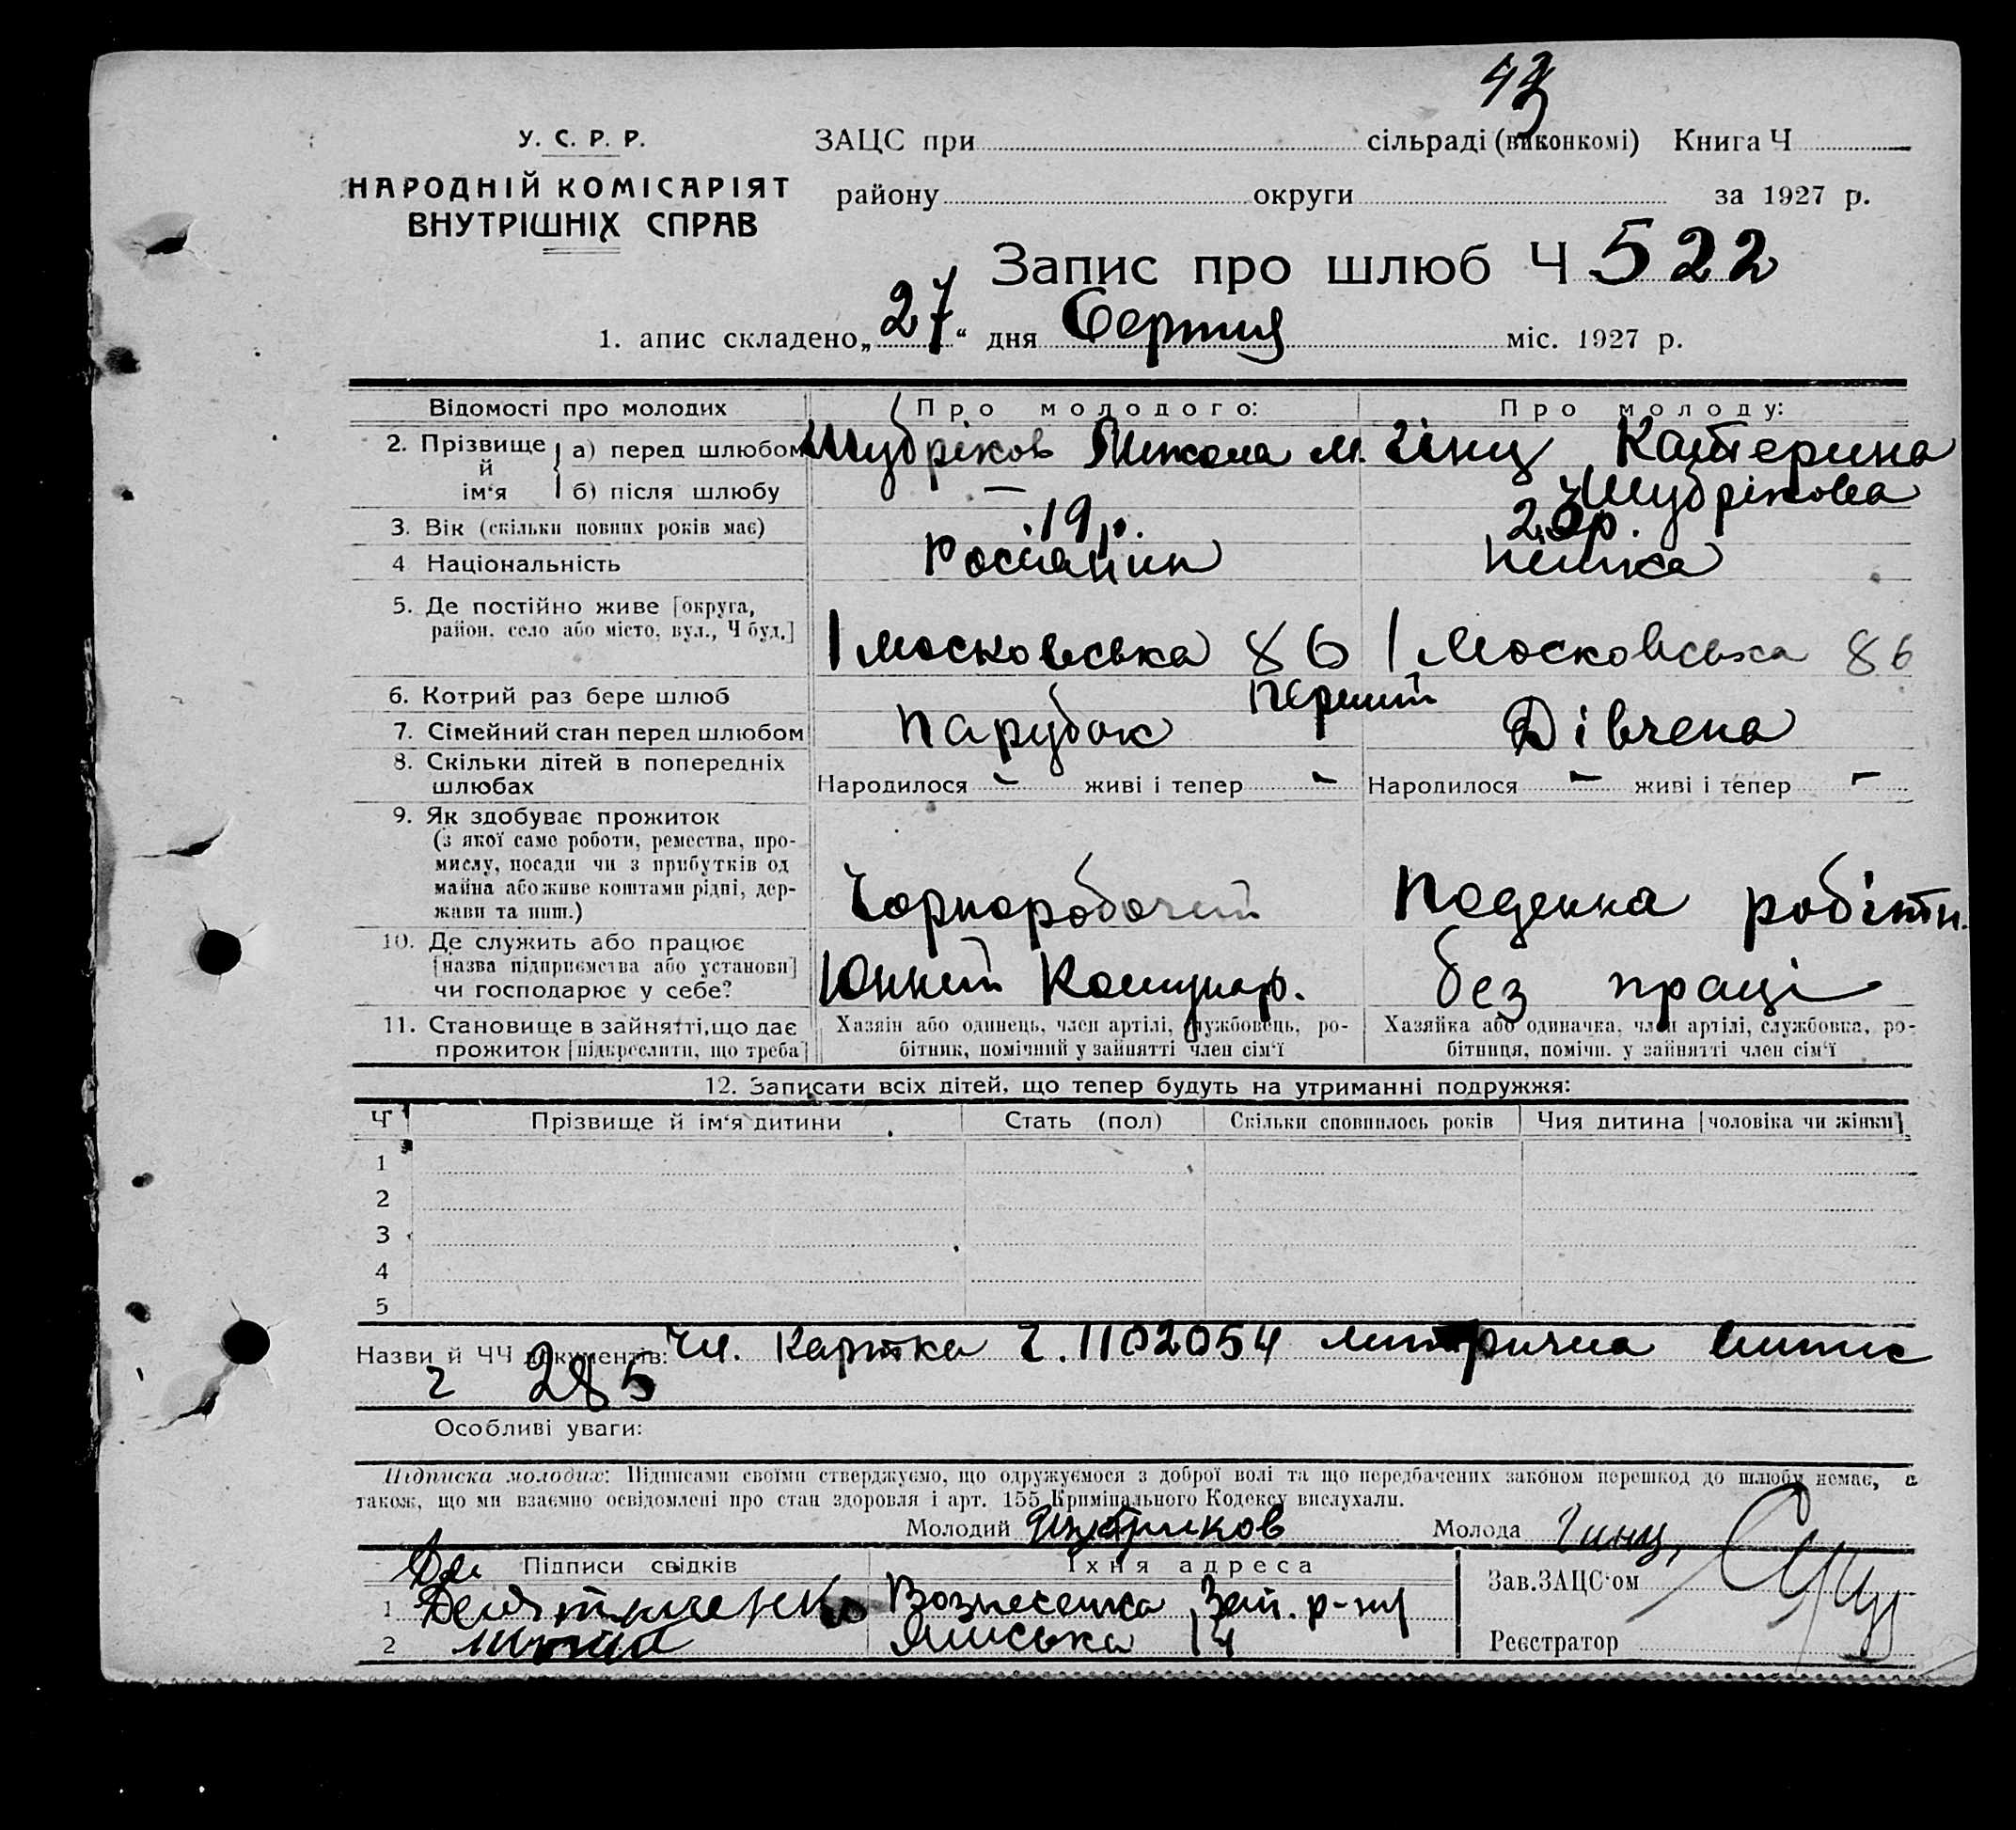 43
У. С. Р. Р.
НАРОДНІЙ КОМІСАРІЯТ
ВНУТРІШНІХ СПРАВ
ЗАЦС при сільраді (виконкомі) Книга Ч
району округи за 1927 р.
Запис про шлюб Ч 522
1. апис складено „27“ дня Серпня міс. 1927 р.
Відомості про молодих Про молодого: Про молоду:
2. Прізвище й ім‘я а) перед шлюбом Шубріков Микола М. Гінц Катерина
б) після шлюбу — Шубрікова
3. Вік (скільки повних років має) 19 р. 20 р.
4 Національність Росіанин Німка
5. Де постійно живе [округа,
район, село або місто, вул., Ч буд.] Московська 86 Московська 86
6. Котрий раз бере шлюб Перший
7. Сімейний стан перед шлюбом Парубок Дівчена
8. Скільки дітей в попередніх
шлюбах Народилося — живі і тепер — Народилося — живі і тепер —
9. Як здобуває прожиток
(з якої саме роботи, ремества, про-
мислу, посади чи з прибутків од
майна або живе коштами рідні, дер-
жави та инш.) Чорноробочий Поденна робітн.
10. Де служить або працює
[назва підприємства або установи]
чи господарює у себе? Юнний Комунар. без праці
11. Становище в зайнятті, що дає
прожиток [підкреслити, що треба]
Хазяїн або одинець, член артілі, службовець, ро-
бітник, помічний у зайнятті член сім‘ї
Хазяйка або одиначка, член артілі, службовка, ро-
бітниця, помічн. у зайнятті член сім‘ї
12. Записати всіх дітей, що тепер будуть на утриманні подружжя:
Ч Прізвище й ім‘я дитини Стать (пол) Скільки сповнилось років Чия дитина [чоловіка чи жінки]
1
2
3
4
5
Назви й ЧЧ документів: Чл. Картка Ч. 1102054 митрична випис
Ч 285
Особливі уваги:
Підписка молодих: Підписами своїми стверджуємо, що одружуємося з доброї волі та що передбачених законом перешкод до шлюбу немає, а
також, що ми взаємно освідомлені про стан здоровля і арт. 155 Кримінального Кодексу вислухали.
Молодий Шубриков Молода Гинц
Підписи свідків Їхня адреса
Зав. ЗАЦС‘ом
1 Вознесенка Зап. р-ну
2 14
Реєстратор